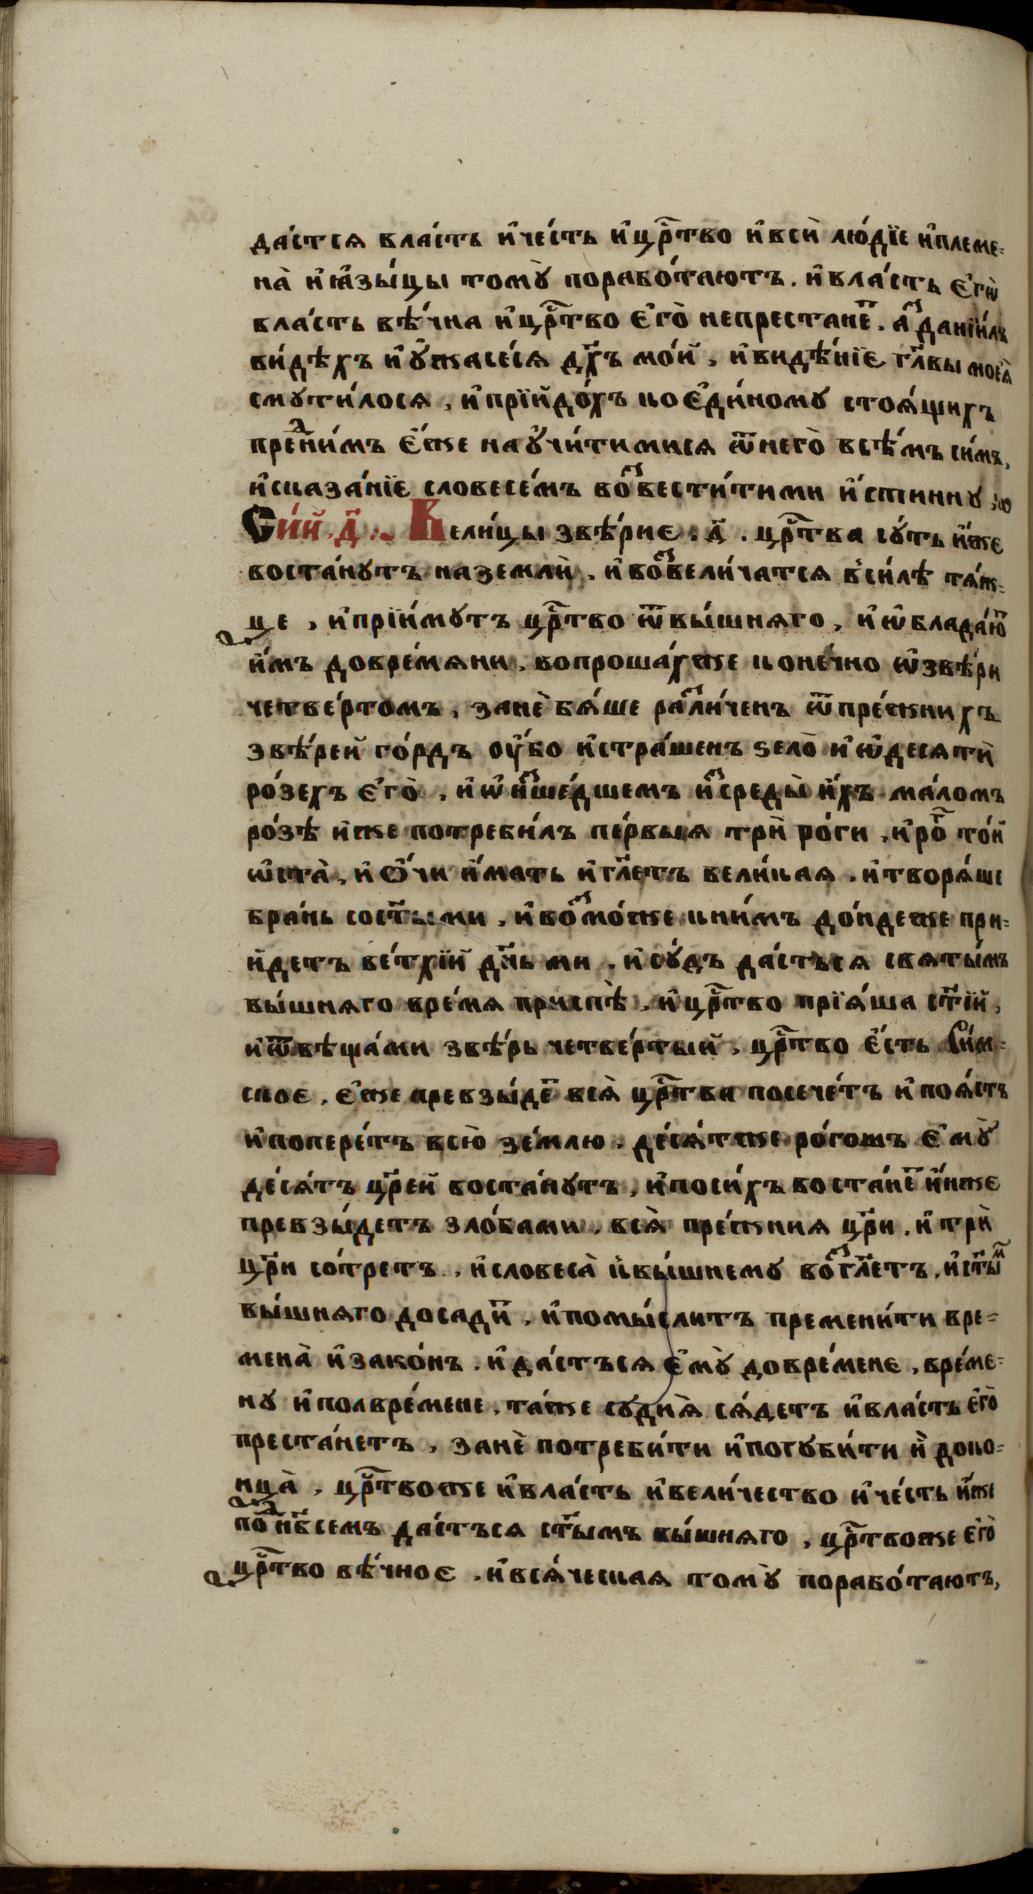 да́стся вла́сть и҆че́сть и҆црⷭ҇тво и҆всѝ лю́дїе и҆племе-
на̀ и҆ꙗ҆зы́цы томꙋ̀ порабо́таютъ. и҆вла́сть є҆гѡ̀
вла́сть вѣ́чна и҆црⷭ҇тво є҆го̀ непрестанеⷮ. аⷥ҇ данїи́лъ
ви́дѣхъ и҆ᲂу҆жасе́ся дх҃ъ мо́й, и҆видѣ́нїе гл҃вы моея̀
смꙋти́лося, и҆прїйдо́хъ коеди́номꙋ стоѧ́щихъ
преⷣни́мъ є҆́же наꙋчи́тимися ѿнего̀ всѣ́мъ си́мъ,
и҆сказа́нїе словесе́мъ воⷥвести́тими и҆́стиннꙋ:
Сїй. д҃. Вели́цы звѣ́рие. д҃. црⷭ҇тва сꙋ́ть и҆́же
воста́нꙋтъ наземлѝ. и҆воⷥвели́чатся в҆си́лѣ тѧ́ж-
це, и҆прїи́мꙋтъ црⷭ҇тво ѿвы́шняго, и҆ѡ҆блада́юⷮ
и҆́мъ довре́мяни. вопроша́хже коне́чно ѡ҆звѣ́ри
четве́ртомъ, занѐ бѧ́ше раⷥли́ченъ ѿпре́жнихъ
звѣ́рей го́рдъ ᲂу҆́бо и҆стра́шенъ ѕело̀ и҆ѡ҆десятѝ
ро́зехъ є҆го̀, и҆ѡ҆ иⷥше́дшемъ иⷥсреды̀ и҆́хъ ма́ломъ
ро́зѣ и҆́же потреби́лъ пе́рвыя трѝ ро́ги, и҆роⷢ҇ то́й
ѡ҆ста̀, и҆ѻ҆́чи и҆́мать и҆гл҃етъ вели́кая. и҆творѧ́ше
бра́нь сост҃ы́ми, и҆воⷥмо́же кни́мъ до́ндеже при-
и́детъ ве́тхїй дн҃ьми, и҆сꙋ́дъ да́стъся святы́мъ
вы́шняго вре́мя приспѣ̀, и҆црⷭ҇тво прїѧ́ша ст҃ї́й,
и҆ѿвѣща́ми звѣ́рь четве́ртый, црⷭ҇тво є҆́сть Ри́м-
ское, є҆́же превзы́деⷮ вся̀ црⷭ҇тва посече́тъ и҆поѧ́стъ
и҆попере́тъ всю̀ зе́млю. де́сѧтже ро́говъ є҆мꙋ̀
де́сѧтъ цр҃ей воста́нꙋтъ, и҆поси́хъ воста́неⷮ и҆́ниже
превзы́детъ зло́бами, вся̀ пре́жния цр҃и. и҆трѝ
цр҃и со́третъ, и҆словеса̀ квы́шнемꙋ воⷥгл҃етъ, и҆ст҃ыⷯ
вы́шняго досадиⷮ, и҆помы́слитъ премени́ти вре-
мена̀ и҆зако́нъ. и҆да́стъся є҆мꙋ̀ довре́мене, вре́ме-
нꙋ и҆полвре́мене, та́же сꙋдия̀ сѧ́детъ и҆вла́сть є҆го̀
преста́нетъ, занѐ потреби́ти и҆погꙋби́ти и҆̀ доко-
нца̀, црⷭ҇твоже и҆вла́сть и҆вели́чество и҆че́сть и҆́же
поⷣнб҃семъ да́стъся ст҃ымъ вы́шняго, црⷭ҇твоже є҆го̀
црⷭ҇тво вѣ́чное. и҆всѧ́ческая томꙋ̀ порабо́таютъ,